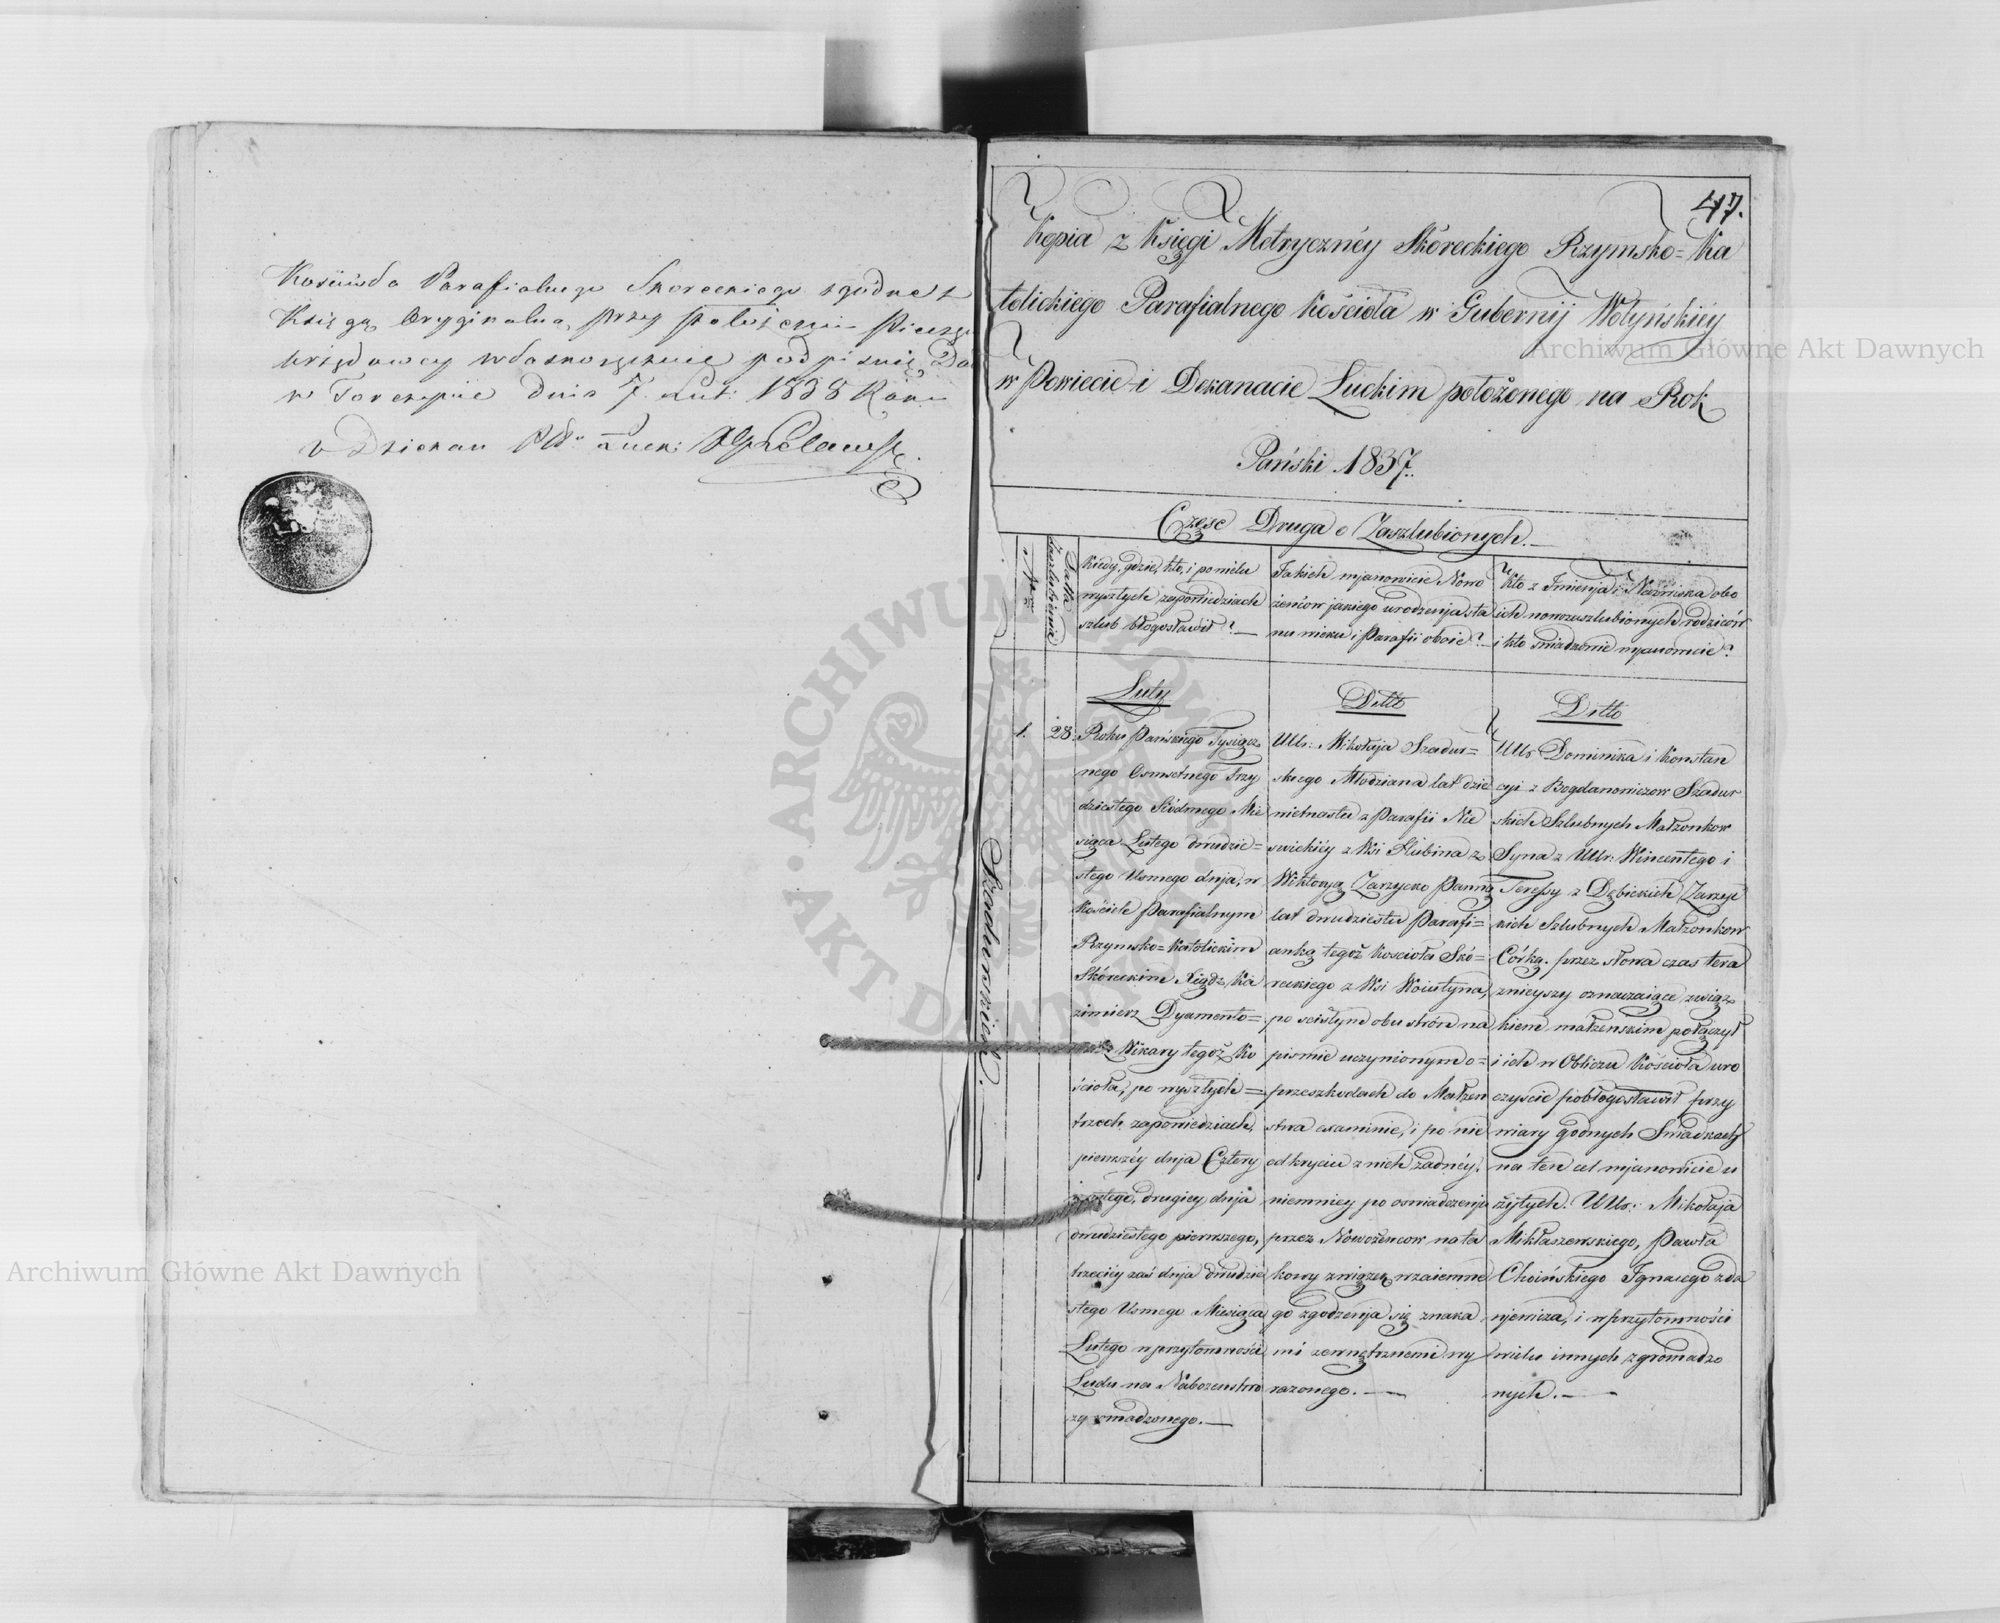 Kościoła Parafialnego Skoreckiego zgodne z
Księgą Oryginalną, przy położeniu Pieczęci
urzędowey własnoręcznie podpisuię. Dat
w Torczynie dnia 7 Lut: 1838 Roku
Dziekan Łucki
47.
Kopia z Księgi Metrycznéy Skóreckiego Rzymsko=Ka
tolickiego Parafialnego Kościoła w Gubernij Wołyńskiéy
w Powiecie i Dekanacie Łuckim położonego na Rok
Pański 1837.
Częsc Druga o Zaszlubionych.—
Datta
Zaszlubienia
Kiedy, gdzie, kto, i po wielu
wyszłych zapowiedziach
szlub błogosławił?—
Jakich mjanowicie Nowo
żeńców jakiego urodzenja sta
nu wieku i Parafii oboie?—
Kto z Imienja i Nazwiska obo
ich nowozaszlubionych rodziców
i kto swiadkowie mjanowicie?
Luty
Ditto
Ditto
Szadurskich.—
1.
28.
Roku Pańskiego Tysiącz
nego Osmsetnego Trzy
dziestego Siódmego Mie
siąca Lutego dwudzie=
stego Osmego dnja, w
Kościele Parafialnym
Rzymsko=Katolickim
Skóreckim Xiądz Ka
zimierz Dyamento=
Wikary tegoż Ko
ścioła, po wyszłych=
trzech zapowiedziach,
pierwszéy dnja Cztery
drugiey dnja
dwudziestego pierwszego,
trzeciéy zaś dnja dwudzie
stego Osmego Miesiąca
Lutego w przytomności
Ludu na Nabozenstwo
zgromadzonego.—
Ur: Mikołaja Szadur=
skiego Młodziana lat dzie
więtnastu z Parafii Nie
swickiéy z Wsi Hubina z
Wiktoryą Zarzycką Panną
lat dwudziestu Parafi=
anką tegoż Kosciola Skó=
reckiego z Wsi Woiutyna,
po scisłym obu strón na
pismie uczynionym o=
przeszkodach do Małzen
stwa examinie, i po nie
odkryciu z nich żadnéy,
niemniey po oswiadczenju
przez Nowożencow na ta
kowy związek wzaiemne
go zgodzenja się znaka
mi zewnętrznemi wy
razonego.—
UUr Dominika i Konstan
cyi z Bogdanowiczow Szadur
skich Szlubnych Małzonkow
Syna z UUr: Wincentego i
Teressy z Dębickich Zarzyc
kich Szlubnych Małzonkow
Córką. przez słowa czas tera
znieyszy oznaczaiące związ
kiem małzenskim połączył
i ich w Obliczu Kościoła uro
czyscie pobłogosławił przy
wiary godnych Swiadkach
na ten cel mjanowicie u
żytych. UUr: Mikołaja
Mikłaszewskiego, Pawła
Choińskiego Ignacego zda
njewicza, i w przytomności
wielu innych zgromadzo
nych.—
Archiwum Główne Akt Dawnych
Archiwum Główne Akt Dawnych